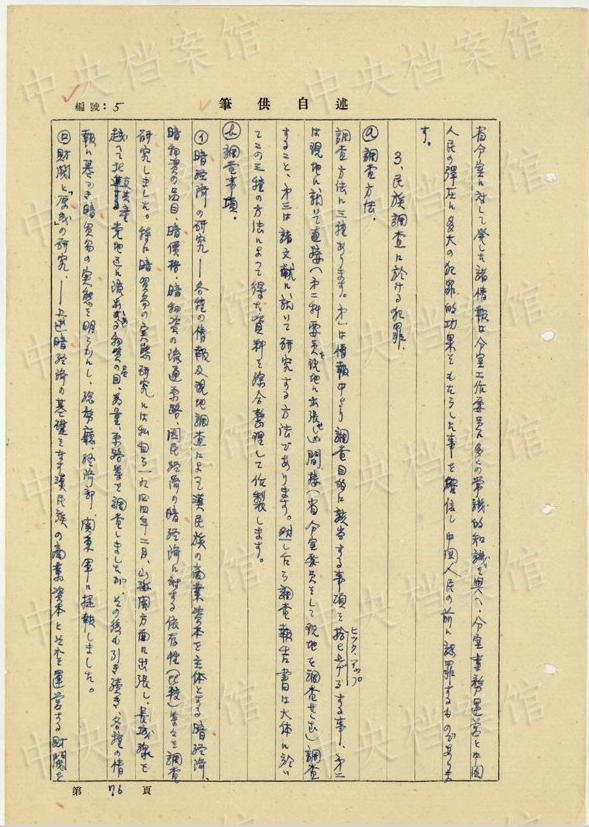 編號: 5
筆供自述
省分室に対して発した諸情報は分室工作委員多くの常識的知識を与へ、分室事務運営と中国
人民の弾圧に多大の犯罪的功果をもたらした事を確信し中国人民の前に認罪するものであります
す。
3、民族調査に於ける犯罪、
ⓐ 調査方法、
調査方法に三種あります。第一は情報中より調査目的に該当する事項を拾ひ上げる事、第二
ピック、アップ
は現地に就いて直接(第二科委員を現地に出張せしめ)間接(省分室委員をして現地を調査せしむ)調査
すること、第三は諸文献に就いて研究する方法であります。調査報告書は大体に於い
てこの三種の方法によって得た資料を綜合整理して作製します。
ⓑ 調査事項、
㋑ 暗経済の研究——各種の情報及現地調査によって漢民族の商業資本を主体とする暗経済、
暗物資の品目、暗價格、暗物資の流通系路、国民経済の暗経済に対する依存性(比較)等々を調査
研究しました。特に暗貿易の実態研究には私自ら一九四四年二月、山海関方面に出張し、長城線を
越って北支
満洲
物資の品目、数量、系路等を調査しましたが、その後も引き続き、各種の情
報に基づき暗貿易の実態を明らかにし、総務廳、経済部、関東軍に提報しました。
㋺ 財閥と
の研究、——
暗経済の基礎をなす漢民族の商業資本とそれを運営する財閥を
第 76 頁
中央档案馆